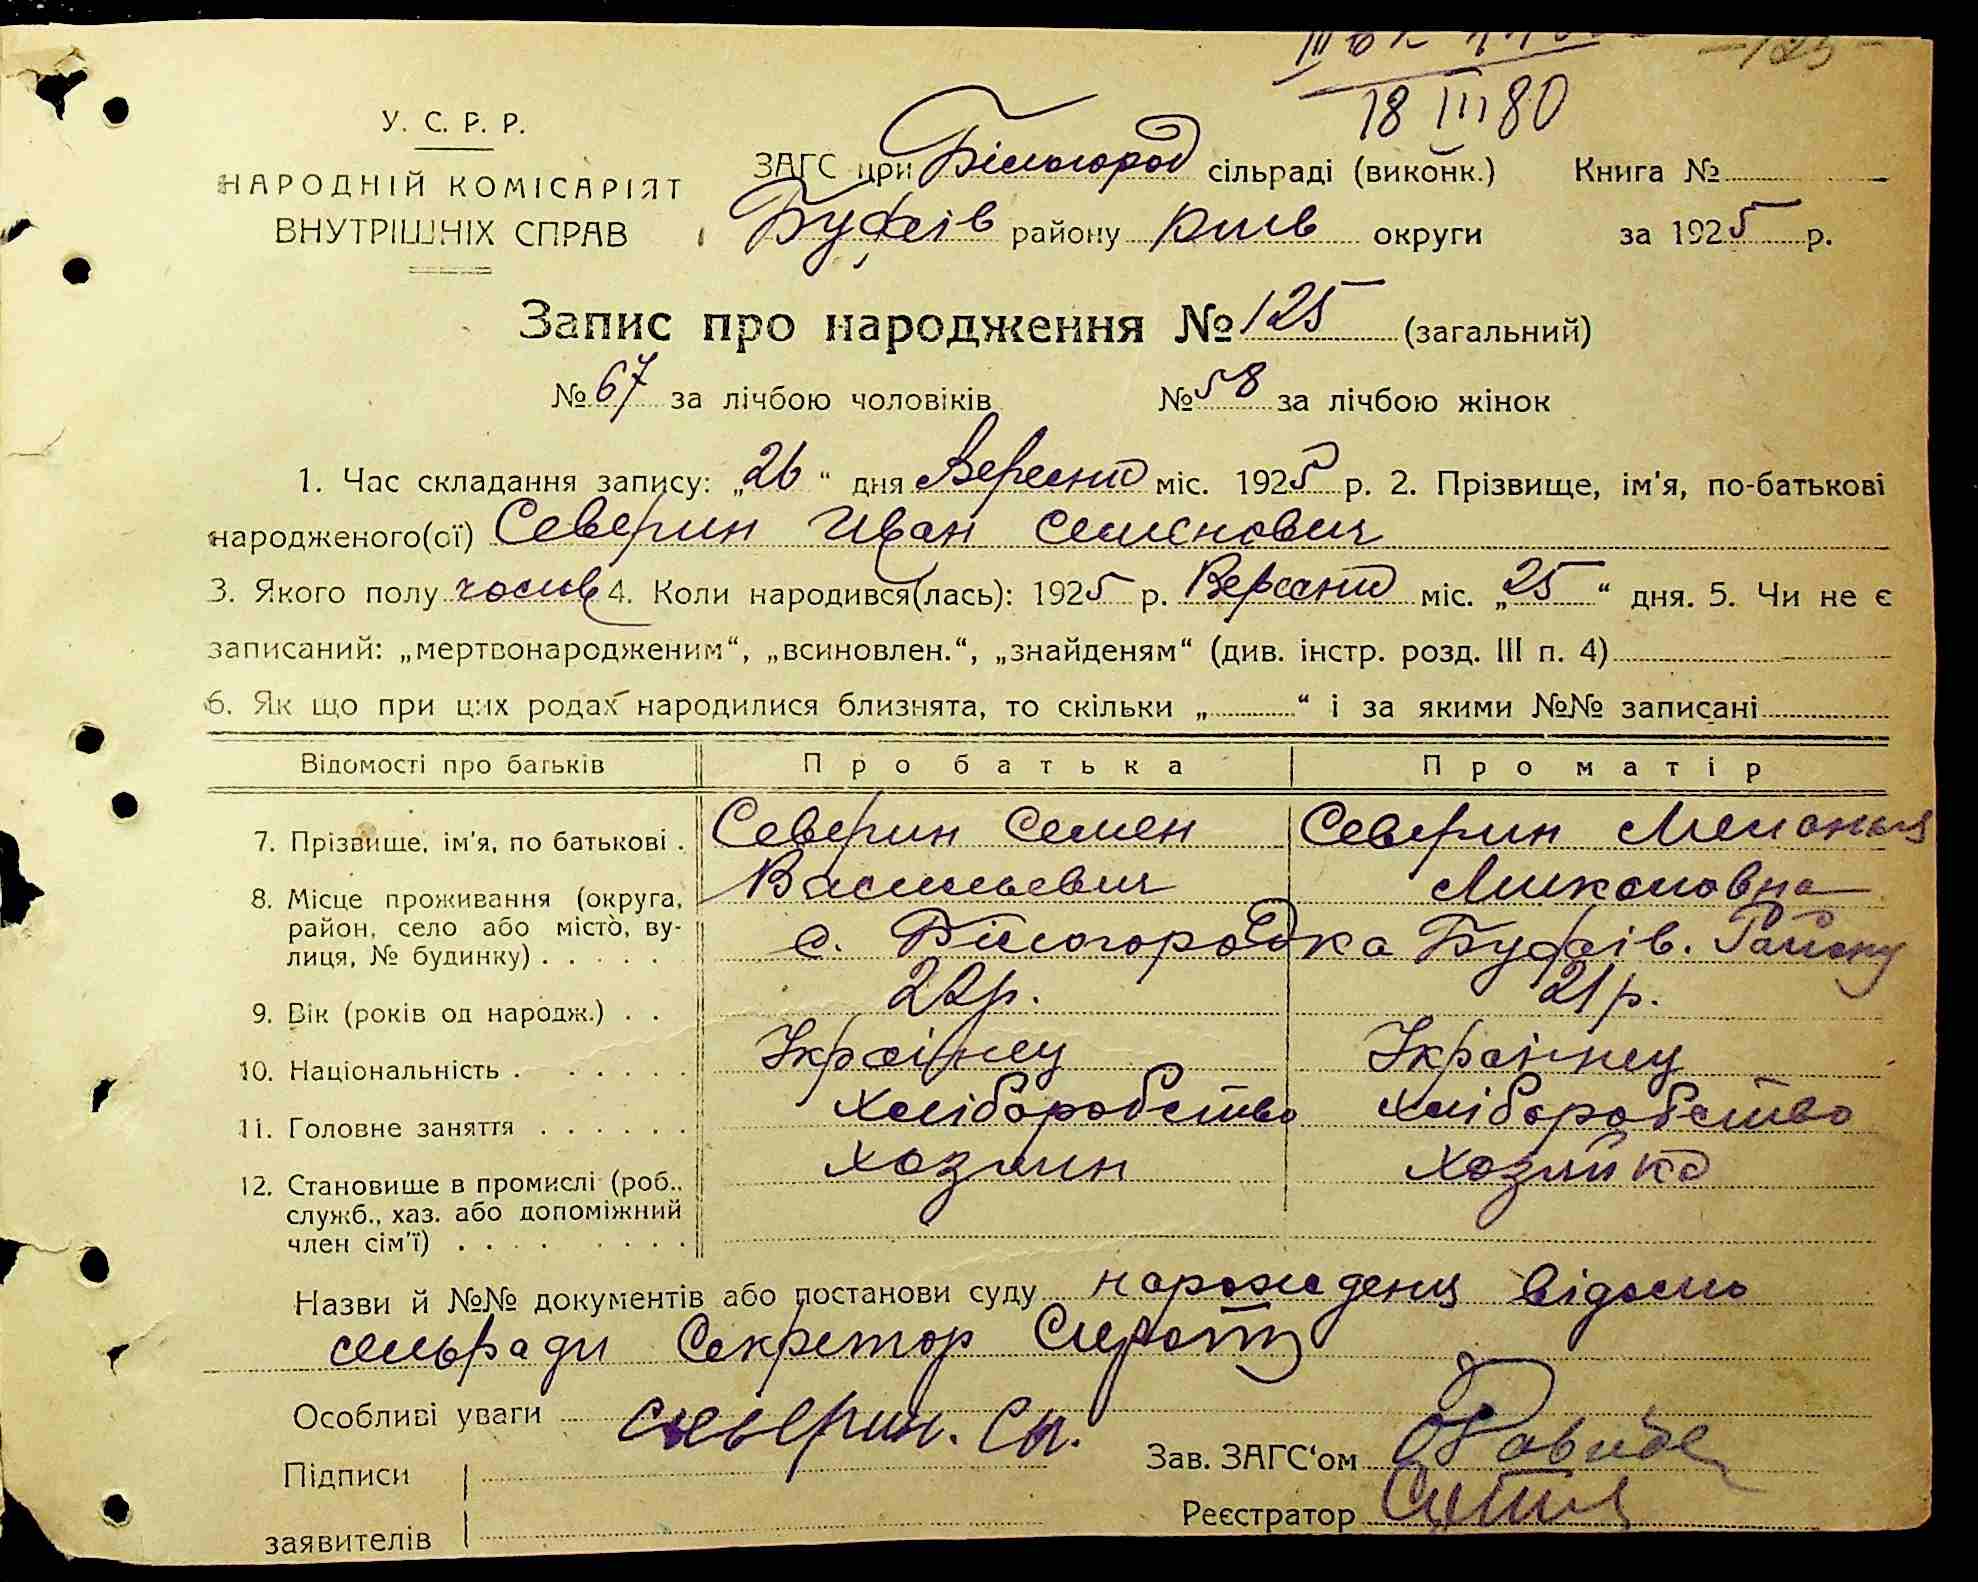 -125-
18 III 80
У. С. Р. Р.
НАРОДНІЙ КОМІСАРІЯТ
ВНУТРІШНІХ СПРАВ
ЗАГС при Білогород сільраді (виконк.) Книга №
Буфаїв району Київ округи за 1925 р.
Запис про народження № 125 (загальний)
№ 67 за лічбою чоловіків № 58 за лічбою жінок
1. Час складання запису: „26“ дня Вересня міс. 1925 р. 2. Прізвище, ім'я, по-батькові
народженого(ої) Северин Иван Семенович
3. Якого полу чолов 4. Коли народився(лась): 1925 р. Вересня міс. „25“ дня. 5. Чи не є
записаний: „мертвонародженим“, „всиновлен.“, „знайденям“ (див. інстр. розд. III п. 4)
6. Як що при цих родах народилися близнята, то скільки „ “ і за якими №№ записані
Відомості про батьків Про батька Про матір
7. Прізвище, ім'я, по батькові . Северин Семен Северин Меланья
Васильевич Миколовна
8. Місце проживання (округа,
район, село або місто, ву-
лиця, № будинку) . . . . . с. Білогородка Буфаїв. Району
9. Вік (років од народж.) . . 22 р. 21 р.
10. Національність . . . . . . Українец Українец
11. Головне заняття . . . . . . Хліборобство Хліборобство
12. Становище в промислі (роб., Хозяин Хозяйка
служб., хаз. або допоміжний
член сім'ї) . . . . . . . .
Назви й №№ документів або постанови суду нарождения відомо
сельради Секретар Сирота
Особливі уваги
Підписи Северин. Сы.
заявителів
Зав. ЗАГС'ом
Реєстратор